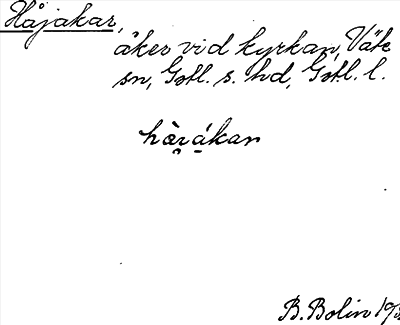 Håjakar,
åker vid kyrkan, Väte
sn, Gotl. s. hd, Gotl. l.
hàrákan
B. Bolin